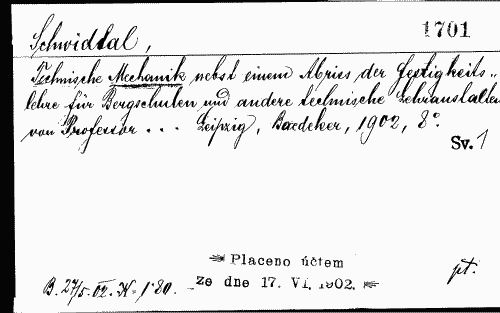 1701
Schwidtal,
Technische Mechanik nebst einem Abriss der Festigkeits-
lehre für Bergschulen und andere technische Lehranstalten
von Professor . . . Leipzig, Baedeker, 1902, 8°.
Sv. 1
Placeno účtem
ze dne 17. VI. 1902.
B. 27/5. 02. K. 1·80.
pt.